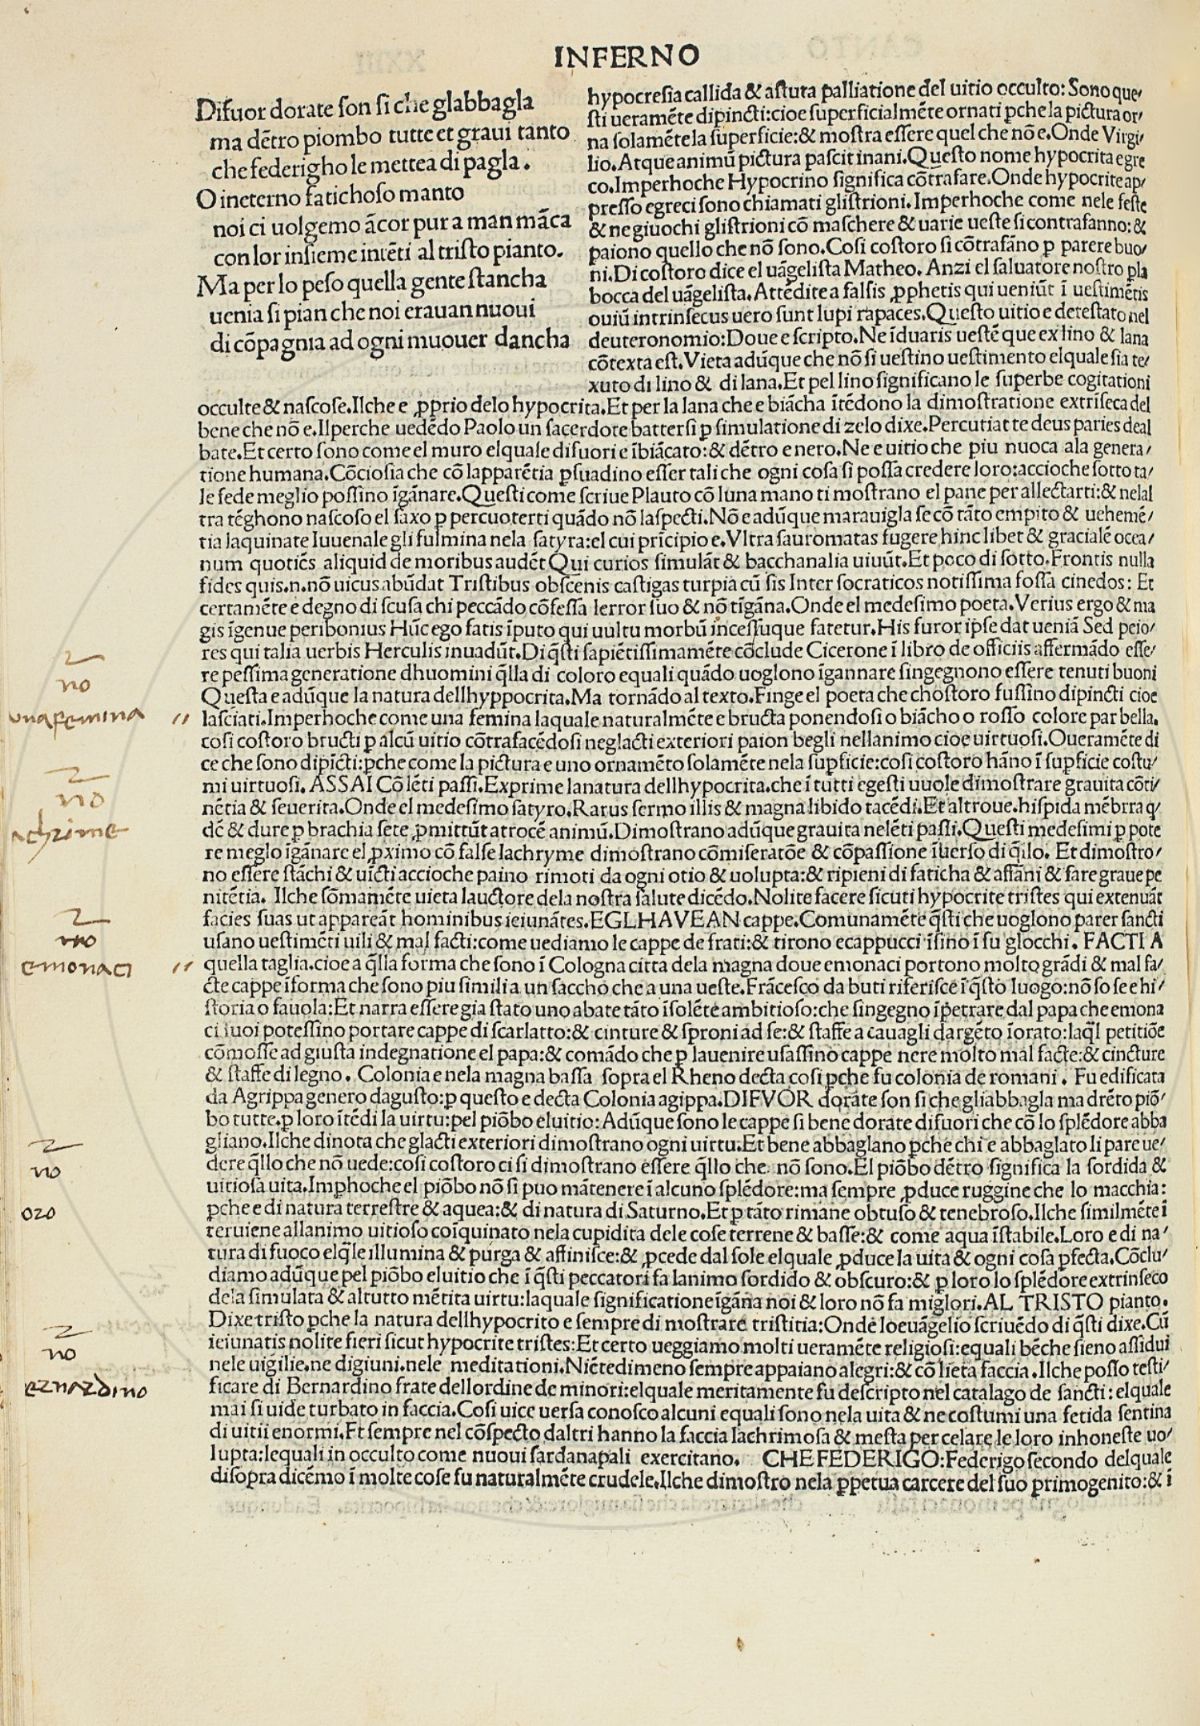 INFERNO
Difuor dorate son si che glabbagla
ma dẽtro piombo tutte et graui tanto
che federigho le mettea di pagla.
O ineterno fatichoso manto
noi ci uolgemo ãcor pur a man mãca
con lor insieme intẽti al tristo pianto.
Ma per lo peso quella gente stancha
uenia si pian che noi erauan nuoui
di cõpagnia ad ogni muouer dancha
hypocresia callida & astuta palliatione del uitio occulto: Sono que/
sti ueramẽte dipincti:cioe superficialmẽte ornati pche la pictura or/
na solamẽte la superficie:& mostra essere quel che nõ e.Onde Virgi/
lio.Atque animũ pictura pascit inani.Questo nome hypocrita e gre
co.Imperhoche Hypocrino significa cõtrafare.Onde hypocrite ap/
presso egreci sono chiamati glistrioni.Imperhoche come nele feste
& ne giuochi glistrioni cõ maschere & uarie ueste si contrafanno:&
paiono quello che nõ sono.Cosi costoro si cõtrafãno ꝑ parere buo/
ni.Di costoro dice el uãgelista Matheo. Anzi el saluatore nostro pla
bocca del uãgelista.Attẽdite a falsis ꝓphetis qui ueniũt ĩ uestimẽtis
ouiũ intrinsecus uero sunt lupi rapaces.Questo uitio e detestato nel
deuteronomio:Doue e scripto.Ne ĩduaris uestẽ que ex lino & lana
cõtexta est.Vieta adũque che nõ si uestino uestimento elquale sia te/
xuto di lino & di lana.Et pel lino significano le superbe cogitationi
occulte & nascose.Ilche e ꝓprio delo hypocrita.Et per la lana che e biãcha ĩtẽdono la dimostratione extriseca del
bene che nõ e.Ilperche uedẽdo Paolo un sacerdote battersi ꝑ simulatione di zelo dixe.Percutiat te deus paries deal
bate.Et certo sono come el muro elquale difuori e ĩbiãcato:& dẽtro e nero.Ne e uitio che piu nuoca ala genera/
tione humana.Cõciosia che cõ lapparẽtia ꝑsuadino esser tali che ogni cosa si possa credere loro:accioche sotto ta/
le fede meglio possino ĩgãnare.Questi come scriue Plauto cõ luna mano ti mostrano el pane per allectarti:& nelal
tra tẽghono nascoso el saxo ꝑ percuoterti quãdo nõ laspecti.Nõ e adũque marauigla se cõ tãto empito & uehemẽ/
tia laquinate Iuuenale gli fulmina nela satyra:el cui prĩcipio e.Vltra sauromatas fugere hinc libet & glacialẽ ocea/
num quotiẽs aliquid de moribus audẽt Qui curios simulãt & bacchanalia uiuũt.Et poco di sotto.Frontis nulla
fides quis.n.nõ uicus abũdat Tristibus obscenis castigas turpia cũ sis Inter socraticos notissima fossa cinedos: Et
certamẽte e degno di scusa chi peccãdo cõfessa lerror suo & nõ tĩgãna.Onde el medesimo poeta.Verius ergo & ma
gis ĩgenue peribonius Hũc ego fatis ĩputo qui uultu morbũ incessuque fatetur.His furor ipse dat ueniã Sed peio/
res qui talia uerbis Herculis inuadũt.Di q̃sti sapiẽtissimamẽte cõclude Cicerone ĩ libro de officiis affermãdo esse/
re pessima generatione dhuomini q̃lla di coloro equali quãdo uoglono ĩgannare singegnono essere tenuti buoni
Questa e adũque la natura dellhyppocrita.Ma tornãdo al texto.Finge el poeta che chostoro fussino dipincti cioe
lasciati.Imperhoche come una femina laquale naturalmẽte e bructa ponendosi o biãcho o rosso colore par bella.
cosi costoro bructi ꝑ alcũ uitio cõtrafacẽdosi neglacti exteriori paion begli nellanimo cioe uirtuosi.Oueramẽte di
ce che sono dipĩcti:pche come la pictura e uno ornamẽto solamẽte nela supficie:cosi costoro hãno ĩ supficie costu/
mi uirtuosi. ASSAI Cõ lẽti passi.Exprime lanatura dellhypocrita.che ĩ tutti egesti uuole dimostrare grauita cõti/
nẽtia & seuerita.Onde el medesimo satyro.Rarus sermo illis & magna libido tacẽdi.Et altroue.hispida mẽbrra q̃
dẽ & dure ꝑ brachia sete ꝓmittũt atrocẽ animũ.Dimostrano adũque grauita nelẽti passi.Questi medesimi ꝑ pote
re meglo ĩgãnare el ꝓximo cõ false lachryme dimostrano cõmiseratõe & cõpassione ĩuerso di q̃llo. Et dimostro/
no essere stãchi & uĩcti accioche paino rimoti da ogni otio & uolupta:& ripieni di faticha & affãni & fare graue pe
nitẽtia. Ilche sõmamẽte uieta lauctore dela nostra salute dicẽdo.Nolite facere sicuti hypocrite tristes qui extenuãt
facies suas ut appareãt hominibus ieiunãtes.EGLHAVEAN cappe.Comunamẽte q̃sti che uoglono parer sancti
usano uestimẽti uili & mal facti:come uediamo le cappe de frati:& tirono ecappucci ĩsino ĩ su glocchi. FACTI A
quella taglia.cioe a q̃lla forma che sono ĩ Cologna citta dela magna doue emonaci portono molto grãdi & mal fa/
cte cappe ĩforma che sono piu simili a un saccho che a una ueste.Frãcesco da buti riferisce ĩ q̃sto luogo:nõ so se e hi/
storia o fauola:Et narra essere gia stato uno abate tãto ĩsolẽte ambitioso:che singegno ĩpetrare dal papa che emona
ci suoi potessino portare cappe di scarlatto:& cinture & sproni ad se:& staffe a cauagli dargẽto ĩorato:laq̃l petitiõe
cõmosse ad giusta indegnatione el papa:& comãdo che ꝑ lauenire usassino cappe nere molto mal facte:& cincture
& staffe di legno. Colonia e nela magna bassa sopra el Rheno decta cosi pche fu colonia de romani. Fu edificata
da Agrippa genero dagusto:ꝑ questo e decta Colonia agippa.DIFVOR dorate son si che gliabbagla ma drẽto piõ/
bo tutte.ꝑ loro ĩtẽdi la uirtu:pel piõbo eluitio:Adũque sono le cappe si bene dorate difuori che cõ lo splẽdore abba
gliano.Ilche dinota che glacti exteriori dimostrano ogni uirtu.Et bene abbaglano pche chi e abbaglato li pare ue/
dere q̃llo che nõ uede:cosi costoro ci si dimostrano essere q̃llo che nõ sono.El piõbo dẽtro significa la sordida &
uitiosa uita.Imphoche el piõbo nõ si puo mãtenere ĩ alcuno splẽdore:ma sempre ꝓduce ruggine che lo macchia:
pche e di natura terrestre & aquea:& di natura di Saturno.Et ꝑ tãto rimane obtuso & tenebroso.Ilche similmẽte ĩ
teruiene allanimo uitioso coĩquinato nela cupidita dele cose terrene & basse:& come aqua ĩstabile.Loro e di na/
tura di fuoco elq̃le illumina & purga & affinisce:& ꝓcede dal sole elquale ꝓduce la uita & ogni cosa pfecta.Cõclu/
diamo adũque pel piõbo eluitio che ĩ q̃sti peccatori fa lanimo sordido & obscuro:& ꝑ loro lo splẽdore extrinseco
dela simulata & altutto mẽtita uirtu:laquale significatione ĩgãna noi & loro nõ fa miglori.AL TRISTO pianto.
Dixe tristo pche la natura dellhypocrito e sempre di mostrare tristitia:Onde loeuãgelio scriuẽdo di q̃sti dixe.Cũ
ieiunatis nolite fieri sicut hypocrite tristes:Et certo ueggiamo molti ueramẽte religiosi:equali bẽche sieno assidui
nele uigilie.ne digiuni.nele meditationi.Niẽtedimeno sempre appaiano alegri:& cõ lieta faccia.Ilche posso testi/
ficare di Bernardino frate dellordine de minori:elquale meritamente fu descripto nel catalago de sancti: elquale
mai si uide turbato in faccia.Cosi uice uersa conosco alcuni equali sono nela uita & ne costumi una fetida sentina
di uitii enormi.Et sempre nel cõspecto daltri hanno la faccia lachrimosa & mesta per celare le loro inhoneste uo/
lupta:lequali in occulto come nuoui sardanapali exercitano. CHE FEDERIGO:Federigo secondo delquale
disopra dicẽmo ĩ molte cose fu naturalmẽte crudele.Ilche dimostro nela ꝑpetua carcere del suo primogenito:& ĩ
no
una femina
no
achrime
no
emonaci
no
oro
no
ernardino